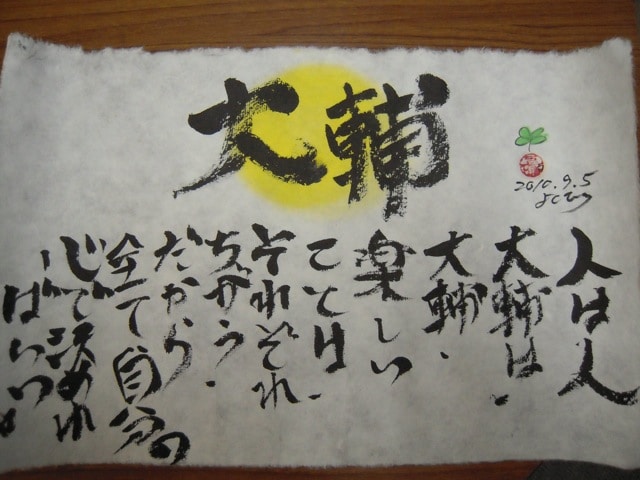 大輔
2010.9.5
人は人
大輔は、
大輔、
楽しい
ことは、
それぞれ
ちがう、
だから
全て自分の
心で決めれ
ばいい。